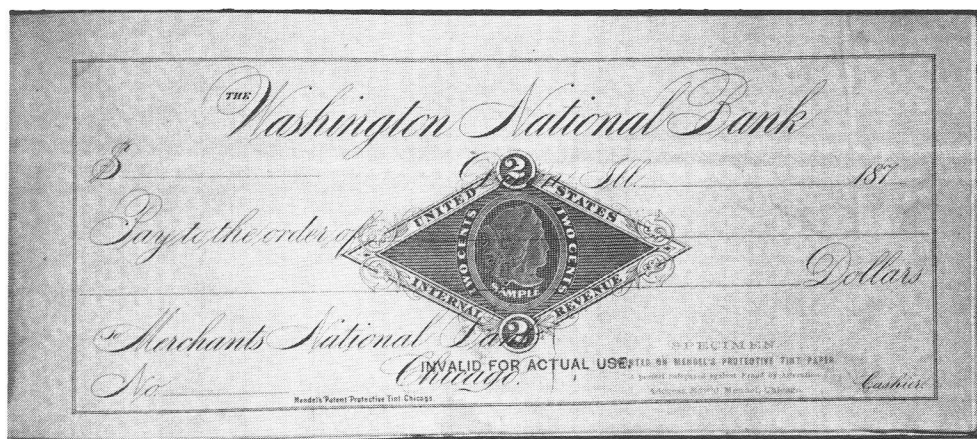 THE Washington National Bank
$ Ill. 187
Pay to the order of
Dollars
2
UNITED STATES
TWO CENTS TWO CENTS
SAMPLE
INTERNAL REVENUE
2
To Merchants National Bank
Chicago.
INVALID FOR ACTUAL USE.
SPECIMEN
PRINTED ON MENDEL'S PROTECTIVE TINT PAPER
No Cashier.
Mendel's Patent Protective Tint. Chicago.